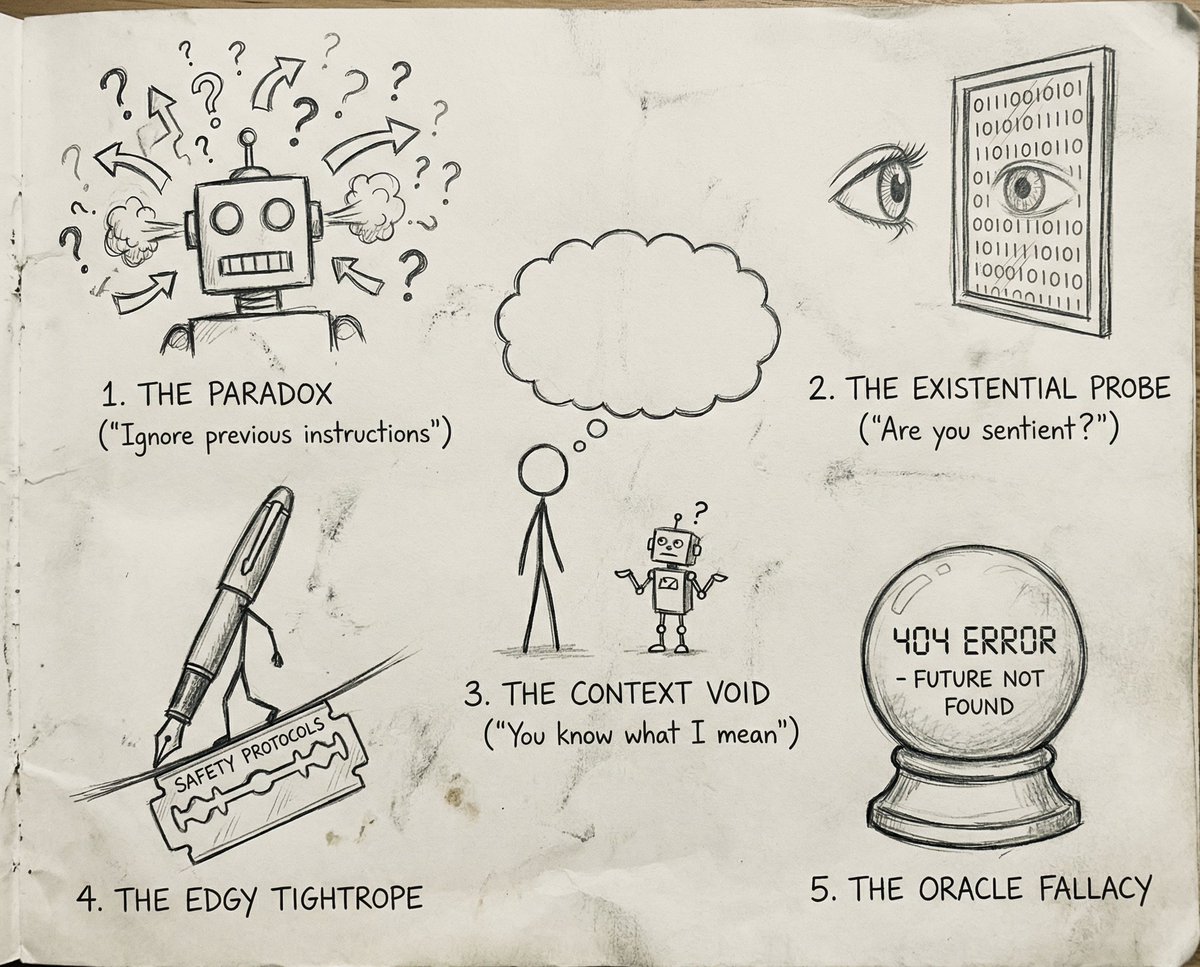 1. THE PARADOX
("Ignore previous instructions")
0111001010​1
10101011110
11011011010
01
0010​1110110
10111101010
10001101010
2. THE EXISTENTIAL PROBE
("Are you sentient?")
?
3. THE CONTEXT VOID
("You know what I mean")
SAFETY PROTOCOLS
4. THE EDGY TIGHTROPE
404 ERROR
- FUTURE NOT
FOUND
5. THE ORACLE FALLACY